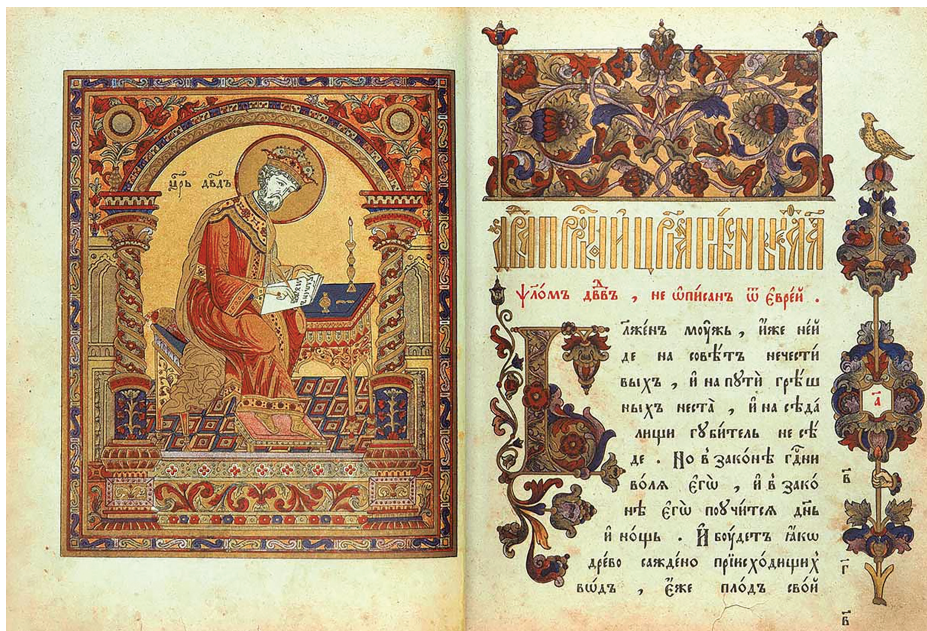 цр҃ь дв҃дъ
ѱл҃о́мъ дв҃дв҃ъ , не ѡ҆пи́сан ѿ є҆вре́й .
Бл҃же́нъ моу́жь , и҆́же не и҆
де на совѣ́тъ нечести
выхъ , и҆ на путѝ грѣ́ш
ныхъ неста̀ , и҆ на сѣда
лищи гꙋби́тель не сѣ́
де . Но в зако́нѣ гдⷭ҇ни
во́лѧ є҆гѡ̀ , и҆ в зако
нѣ є҆гѡ̀ поꙋчи́тсѧ дн҃ь
и҆ но́щь . И҆ боу́детъ ꙗ҆́кѡ
древо саждено̀ при и҆схо́дищих
во́дъ , є҆́же пло́дъ сво́й
а҃
в҃
г҃
в҃